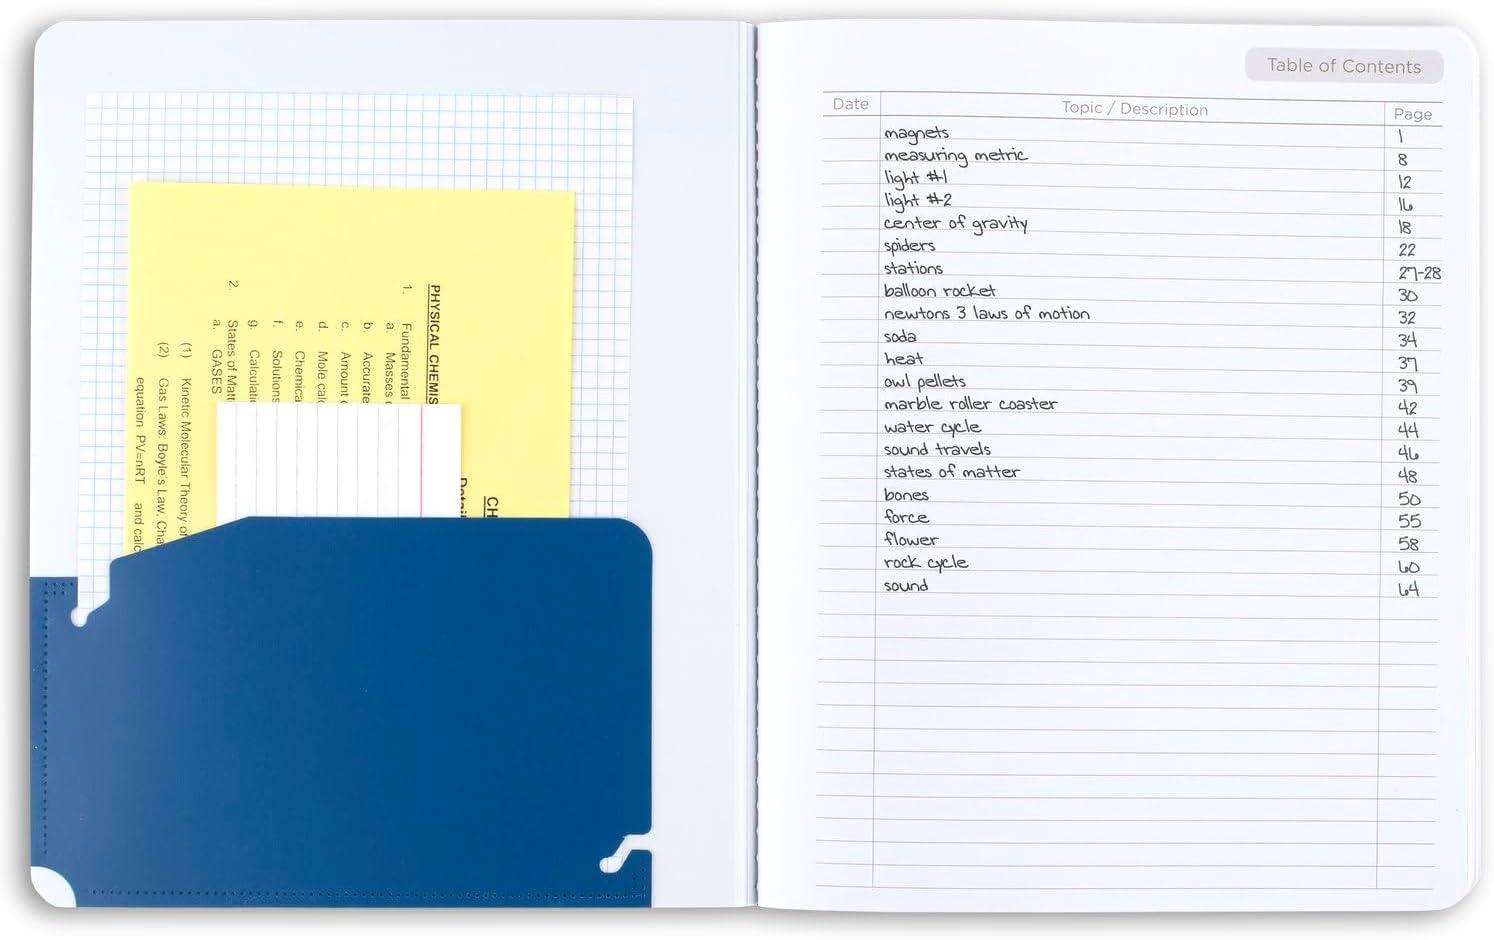 PHYSICAL CHEMIS
1. Fundamental
a. Masses
b. Accurate
c. Amount
d. Mole calc
e. Chemica
f. Solutions
g. Calculati
2. States of Matt
a. GASES
(1) Kinetic Molecular Theory of
(2) Gas Laws: Boyle's Law, Cha
equation PV=nRT and calc
CH
Detail
Table of Contents
Date Topic / Description Page
magnets 1
measuring metric 8
light #1 12
light #2 16
center of gravity 18
spiders 22
stations 27-28
balloon rocket 30
newtons 3 laws of motion 32
soda 34
heat 37
owl pellets 39
marble roller coaster 42
water cycle 44
sound travels 46
states of matter 48
bones 50
force 55
flower 58
rock cycle 60
sound 64